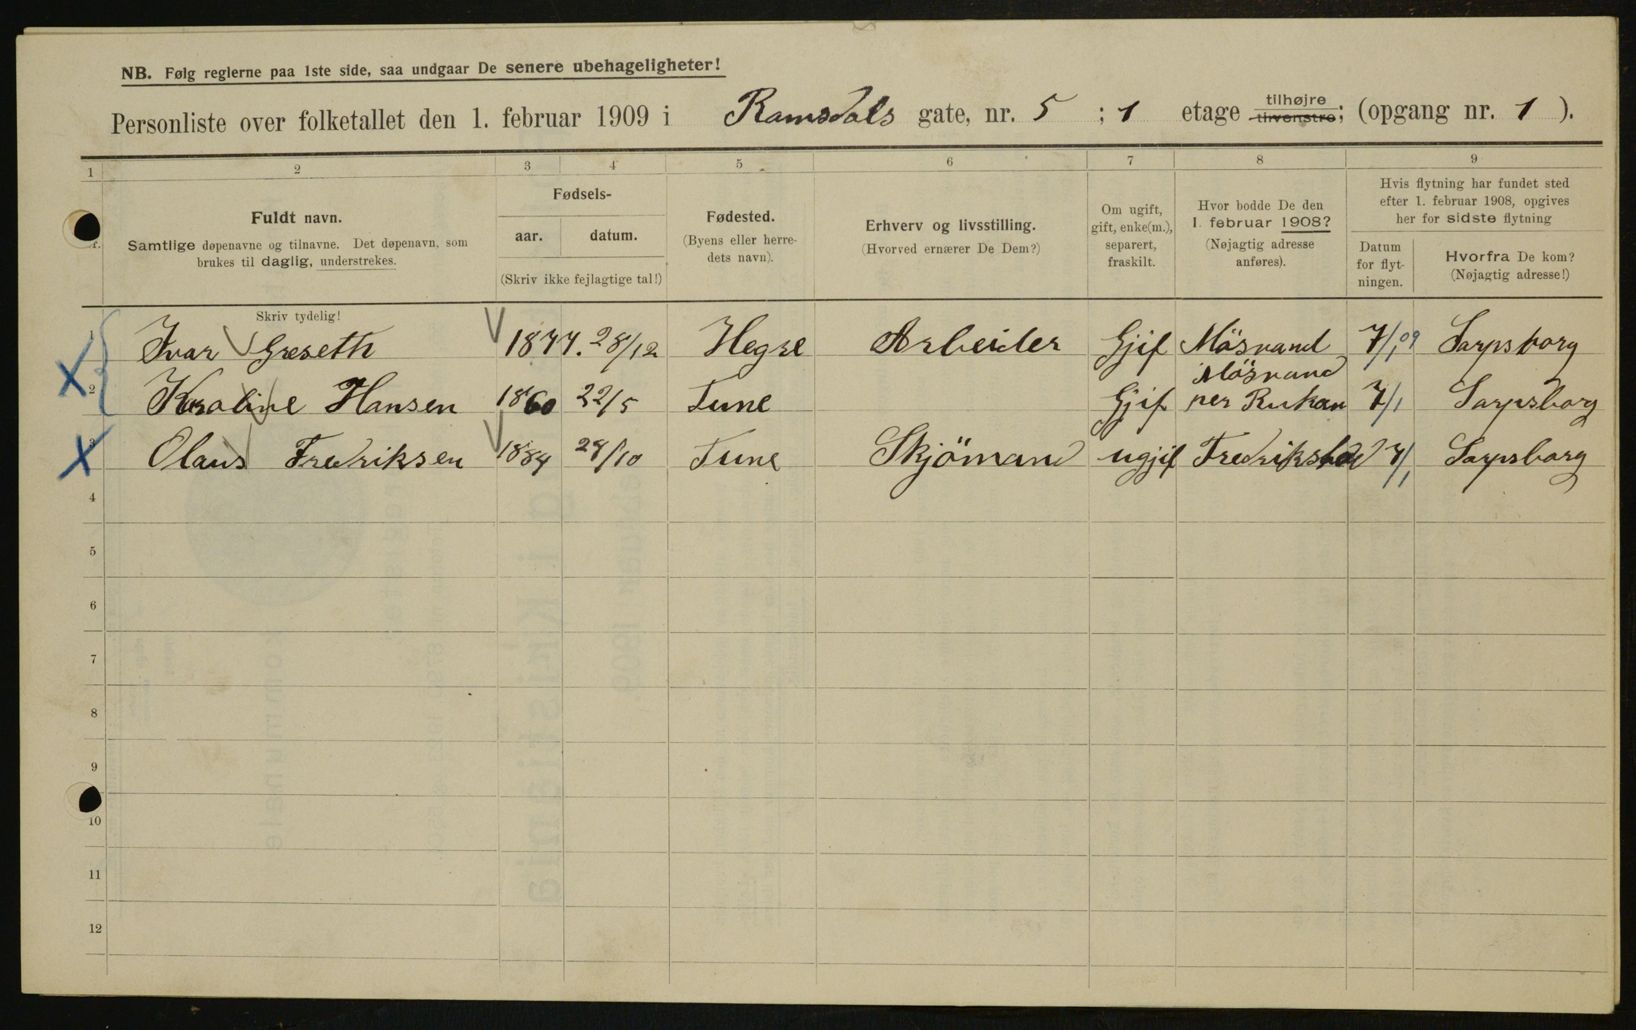 NB. Følg reglerne paa 1ste side, saa undgaar De senere ubehageligheter!
Personliste over folketallet den 1. februar 1909 i Ramsdals gate, nr. 5 ; 1 etage tilhøjre tilvenstre; (opgang nr. 1 ).
1 2 3 4 5 6 7 8 9
Fuldt navn.
Samtlige døpenavne og tilnavne. Det døpenavn, som
brukes til daglig, understrekes.
Skriv tydelig!
Fødsels-
aar. datum.
(Skriv ikke fejlagtige tal!)
Fødested.
(Byens eller herre-
dets navn).
Erhverv og livsstilling.
(Hvorved ernærer De Dem?)
Om ugift,
gift, enke(m.),
separert,
fraskilt.
Hvor bodde De den
1. februar 1908?
(Nøjagtig adresse
anføres).
Hvis flytning har fundet sted
efter 1. februar 1908, opgives
her for sidste flytning
Datum
for flyt-
ningen.
Hvorfra De kom?
(Nøjagtig adresse!)
1 Ivar Greseth 1877. 28/12 Hegre Arbeider Gjif Mösvand 7/1 09 Sarpsborg
2 Karoline Hansen 1860 22/5 Tune Gjif Mösvand per Rukan 7/1 Sarpsborg
3 Olaus Fredriksen 1884 28/10 Tune Skjömand ugjif Fredrikshald 7/1 Sarpsborg
4
5
6
7
8
9
10
11
12